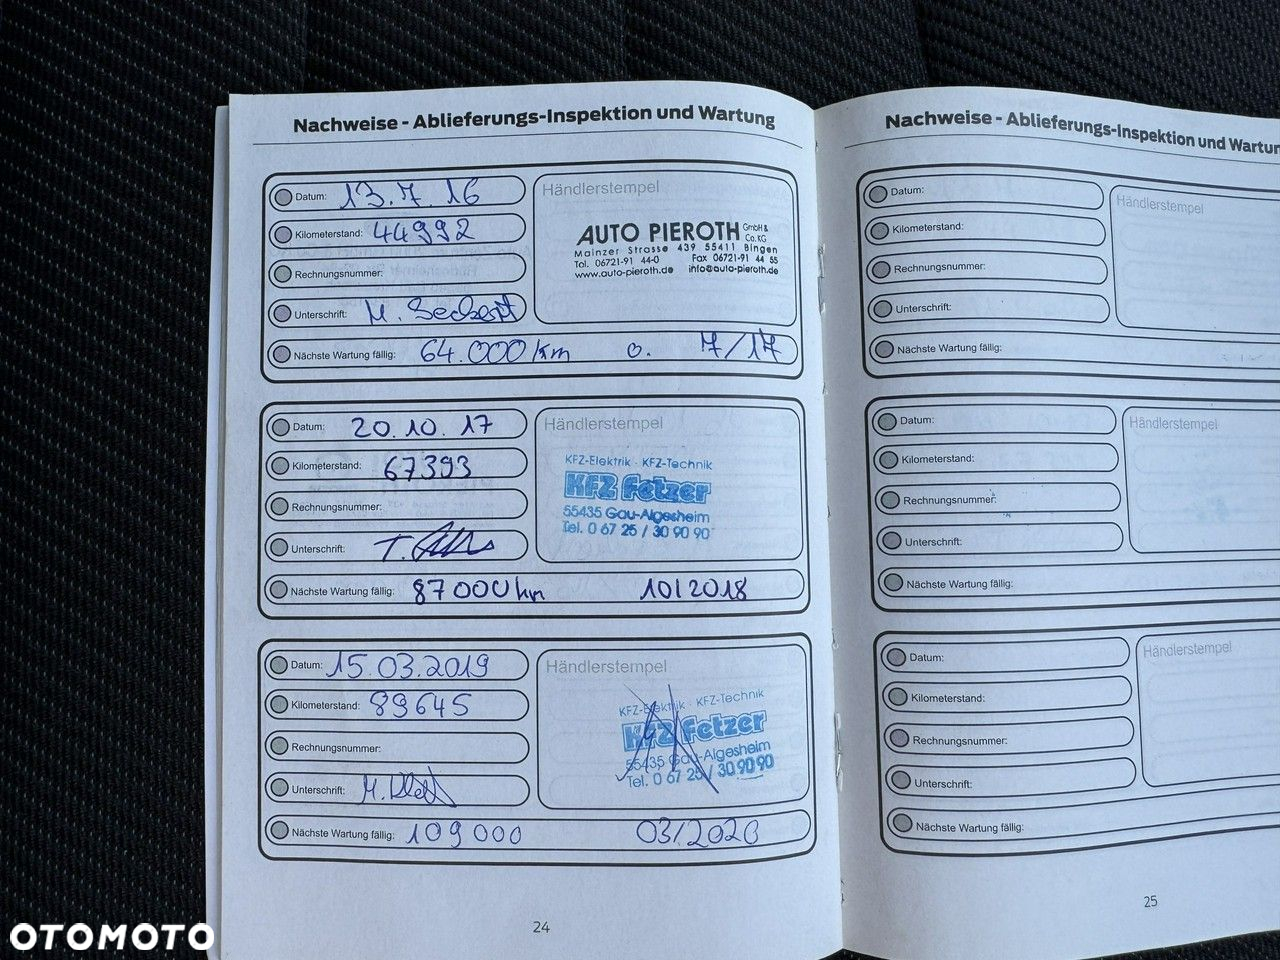 Nachweise - Ablieferungs-Inspektion und Wartung
Datum: 13.7.16
Kilometerstand: 44992
Rechnungsnummer:
Unterschrift: M.
Nächste Wartung fällig: 64.000 km o. 7/17
Händlerstempel
AUTO PIEROTH GmbH & Co. KG
Mainzer Strasse 439 55411 Bingen
Tel. 06721-91 44-0 Fax 06721-91 44 55
www.auto-pieroth.de info@auto-pieroth.de
Datum: 20.10.17
Kilometerstand: 67393
Rechnungsnummer:
Unterschrift:
Nächste Wartung fällig: 87000 km 10/2018
Händlerstempel
KFZ-Elektrik · KFZ-Technik
KFZ Fetzer
55435 Gau-Algesheim
Tel. 0 67 25 / 30 90 90
Datum: 15.03.2019
Kilometerstand: 89645
Rechnungsnummer:
Unterschrift:
Nächste Wartung fällig: 109000 03/2020
Händlerstempel
KFZ-Elektrik · KFZ-Technik
KFZ Fetzer
55435 Gau-Algesheim
Tel. 0 67 25 / 30 90 90
24
Nachweise - Ablieferungs-Inspektion und Wartun
Datum:
Kilometerstand:
Rechnungsnummer:
Unterschrift:
Nächste Wartung fällig:
Händlerstempel
Datum:
Kilometerstand:
Rechnungsnummer:
Unterschrift:
Nächste Wartung fällig:
Händlerstempel
Datum:
Kilometerstand:
Rechnungsnummer:
Unterschrift:
Nächste Wartung fällig:
Händlerstempel
25
OTOMOTO